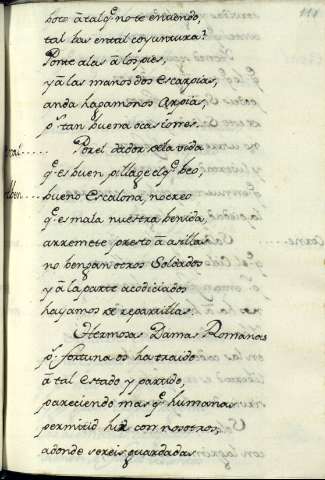 111
bote á tal q.^e no te entiendo,
tal has en tal coyuntura?
Ponte alas á los pies,
y á las manos dos Escarpias,
anda hagamonos Arpias,
p.^a tan buena ocasion es.
Por el dador de la vida
q.^e es buen pillage el q.^e beo,
bueno Escalona, no creo
q.^e es mala nuestra benida,
arremete presto á asillas
no bengan otros Soldados
y á la parte acodiciados
hayamos de repartillas.
Hermosas Damas Romanas
p.^s fortuna os ha traido
á tal estado y partido,
pareciendo mas q.^e humanas
permitid hir con nosotros,
adonde sereis guardadas